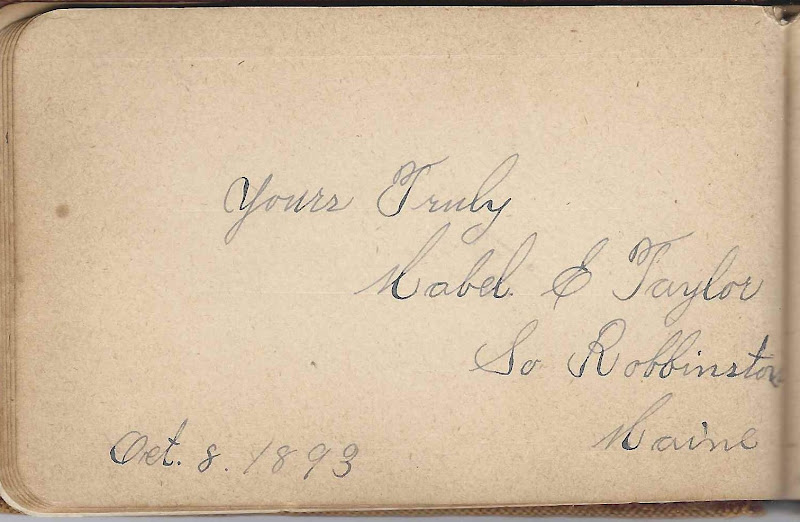 Yours Truly
Mabel. E Taylor
So Robbinston
Maine
Oct. 8. 1893